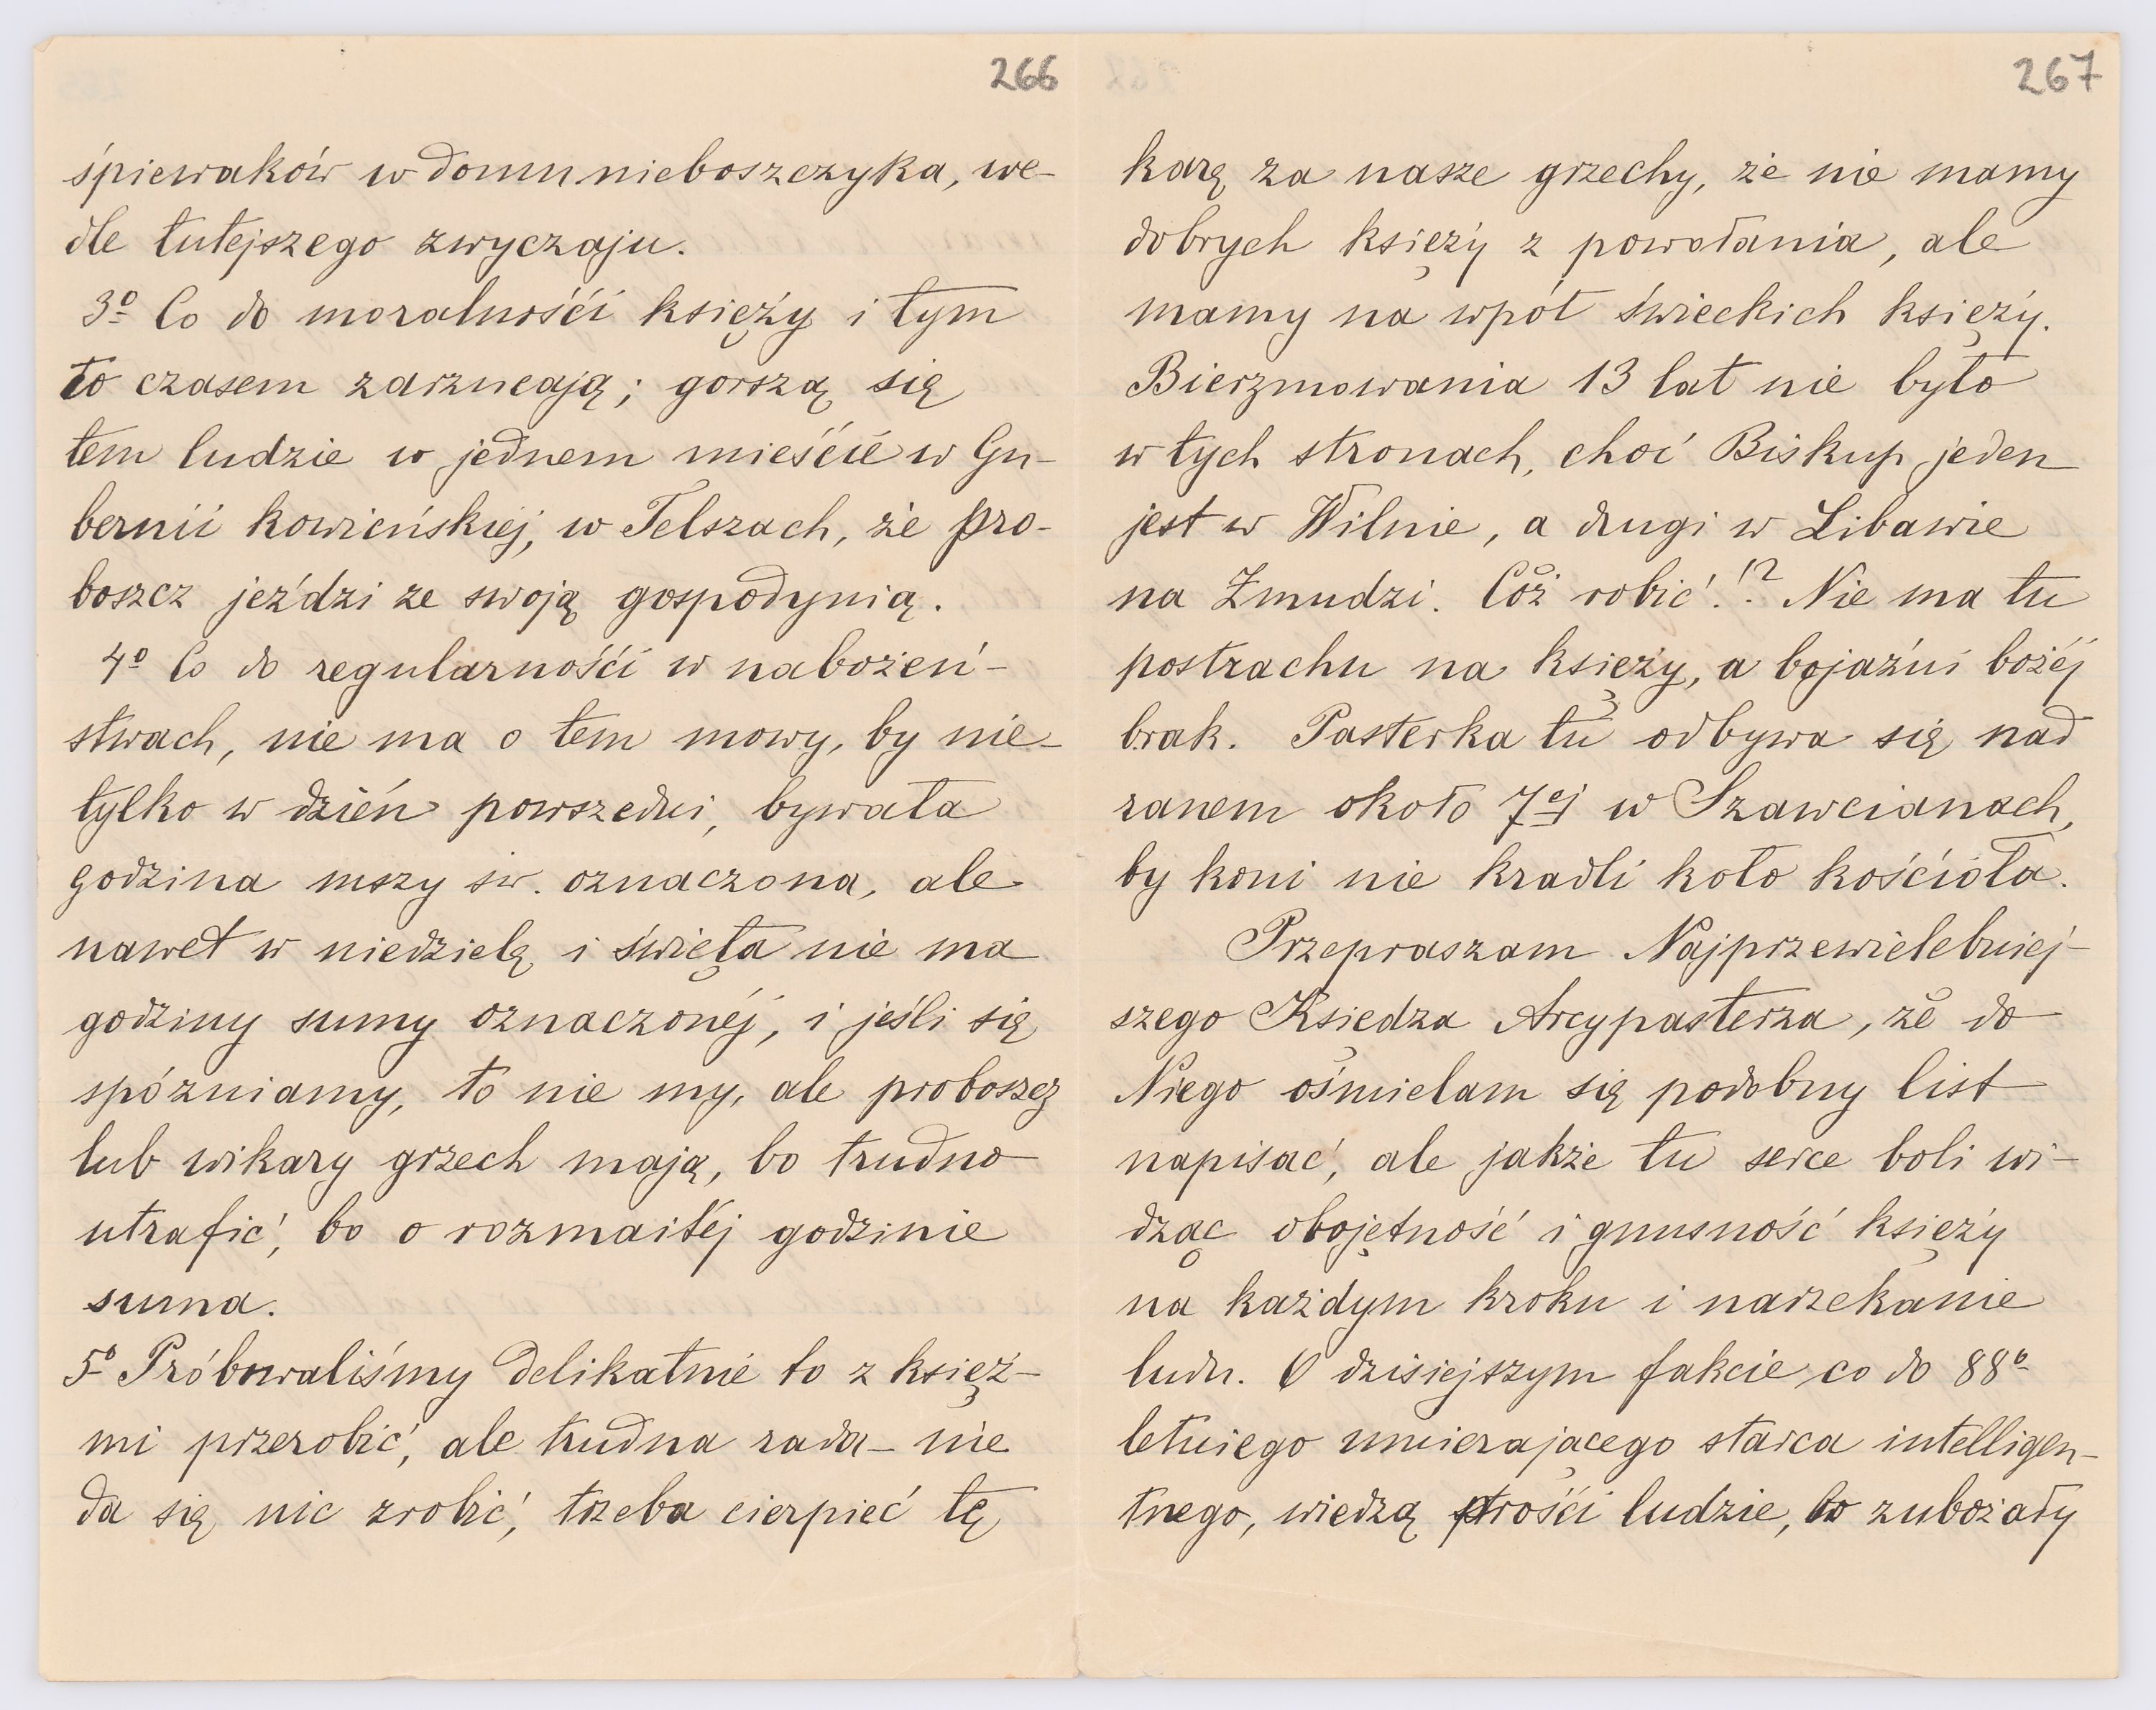 266
śpiewaków w domu nieboszczyka, we-
dle tutejszego zwyczaju.
3º Co do moralnośći księży i tym
to czasem zarzucają; gorszą się
tem ludzie w jednem mieśćie w Gu-
bernii kowieńskiej, w Telszach, że pro-
boszcz jeździ ze swoją gospodynią.
4º Co do regularnośći w nabożeń-
stwach, nie ma o tem mowy, by nie-
tylko w dzień powszedni, bywała
godzina mszy św. oznaczona, ale
nawet w niedzielę i święta nie ma
godziny sumy oznaczonéj, i jeśli się
spózniamy, to nie my, ale proboszcz
lub wikary grzech mają, bo trudno
utrafić, bo o rozmaitéj godzinie
suma.
5º Próbowaliśmy delikatnie to z księż-
mi przerobić, ale trudna rada – nie
da się nic zrobić, trzeba cierpieć tę
267
karę za nasze grzechy, że nie mamy
dobrych księży z powołania, ale
mamy na wpół świeckich księży.
Bierzmowania 13 lat nie było
w tych stronach, choć Biskup jeden
jest w Wilnie, a drugi w Libawie
na Żmudzi. Cóż robić!? Nie ma tu
postrachu na księży, a bojaźni bożéj
brak. Pasterka tu odbywa się nad
ranem około 7ej w Szawcianach,
by koni nie kradli koło kośćioła.
Przepraszam Najprzewielebniej-
szego Księdza Arcypasterza, że do
Niego ośmielam się podobny list
napisać, ale jakże tu serce boli wi-
dząc obojętność i gnusność księży
na każdym kroku i narzekanie
ludu. O dzisiejszym fakcie co do 88º
letniego umierającego starca intelligen-
tnego, wiedzą prośći ludzie, bo zubożały